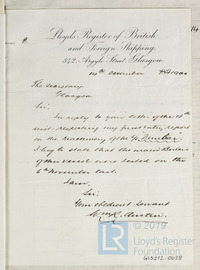 Lloyd's Register of British
and Foreign Shipping,
342, Argyle Street, Glasgow
14th December 190
The Secretary
Glasgow
Sir,
In reply to your letter of the
inst. respecting my first entry report
on the Machinery of the
I beg to state that the main Boilers
of this vessel were tested on the
6th November last.
I am,
Sir,
Your obedient Servant
Austin.
© 2019
Lloyd's Register
Foundation